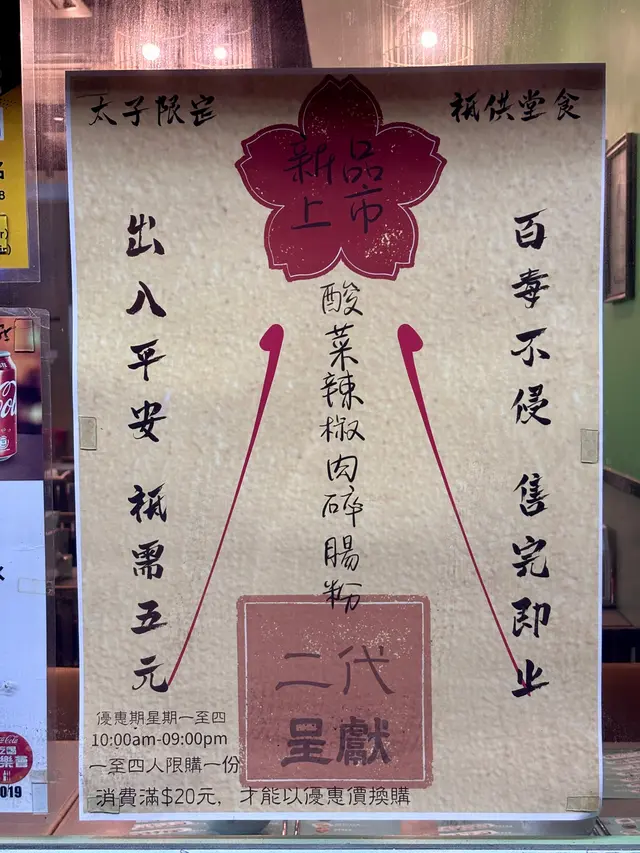 太子限定
祇供堂食
新品
上市
百毒不侵 售完即止
酸菜辣椒肉碎腸粉
出入平安 祇需五元
二代
呈獻
優惠期星期一至四
10:00am-09:00pm
一至四人限購一份
消費滿$20元，才能以優惠價換購
2019